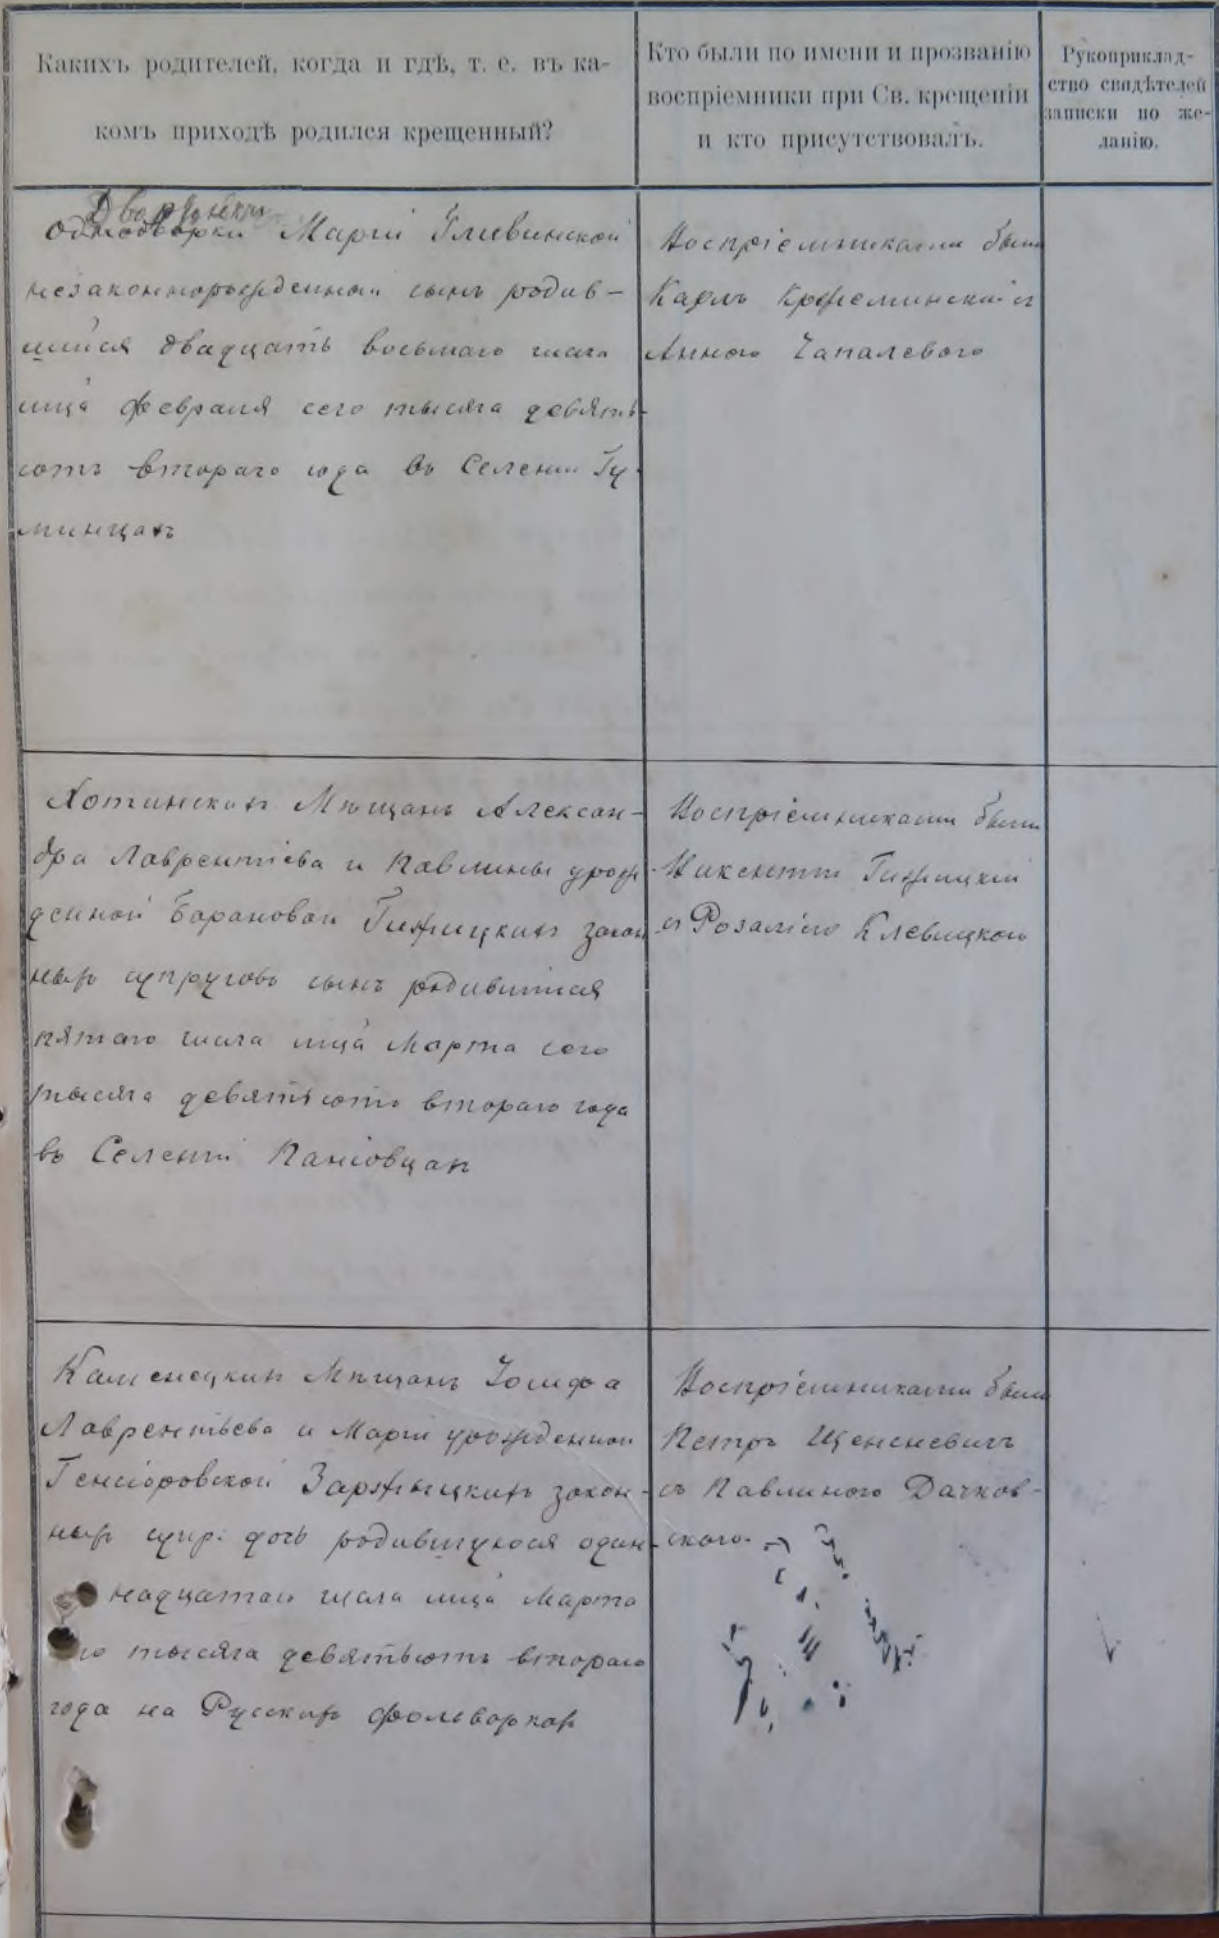 Какихъ родителей, когда и гдѣ, т. е. въ ка-
комъ приходѣ родился крещенный?
Кто были по имени и прозванію
воспріемники при Св. крещеніи
и кто присутствовалъ.
Рукоприклад-
ство свидѣтелей
записки по же-
ланію.
Дворянки
однодворки Маріи Гливинской
незаконнорожденный сынъ родив-
шійся двадцать восьмаго числа
мца Февраля сего тысяча девять-
сотъ втораго года въ Селеніи Гу-
минцахъ
Воспріемниками были
Карлъ Кржеминскій и
Анною Чапалевого
Хотинскихъ Мѣщанъ Алексан-
дра Лаврентіева и Павлины урож
денной Барановой Гижицкихъ закон
ныхъ супруговъ сынъ родившійся
пятаго числа мца Марта сего
тысяча девятьсотъ втораго года
въ Селеніи Паніовцахъ
Воспріемниками были
Викентій Гижицкій
и Розалію Клевицкою
Каменецкихъ Мѣщанъ Іосифа
Лаврентьева и Маріи урожденной
Генсіоровской Заржицкихъ закон-
ныхъ супр. дочь родившуюся один-
надцатаго числа мца Марта
го тысяча девятьсотъ втораго
года на Русскихъ фольваркахъ
Воспріемниками были
Петръ Щенсневичъ
съ Павлиною Дачков-
скою